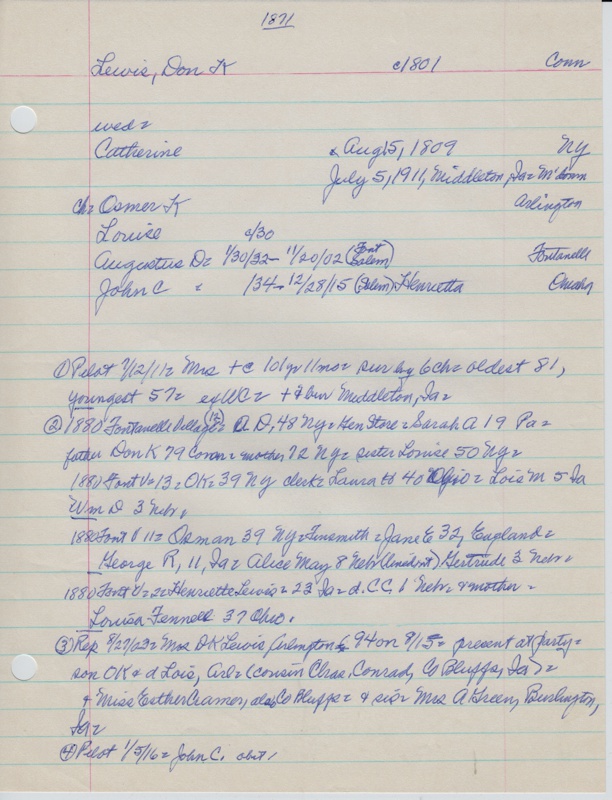 1871
Lewis, Don K c1801 Conn
wed =
Catherine Aug 5, 1809 NY
July 5, 1911, Middleton, Ia =
Arlington
ch = Osmer K
Louise c/30
Augustus D = 1/30/32 - 11/20/02 (Font Salem) Fontanelle
John C = /34 - 12/28/15 (Salem), Henrietta Omaha
① Pilot 7/12/11 = Mrs + c 101 yr 11 mo = sur by 6 ch = oldest 81,
youngest 57 = = + & bur Middleton, Ia =
② 1880 Fontanelle Village (12) = A D, 48 Ny = Gen Store = Sarah A 19 Pa =
father Don K 79 Conn = mother 72 Ny = sister Louise 50 Ny =
1880 Font V = 13 = OK = 39 Ny clerk = Laura 40 Ohio = Lois M 5 Ia
Wm D 3 Nebr.
1880 Font V 11 = Osman 39 Ny = Tinsmith = Jane E 32, England =
George R, 11, Ia = Alise May 8 Nebr Gertrude 3 Nebr =
1880 Font V = 2 = Henriette Lewis = 23 Ia = d. CC, 1 Nebr. & mother =
Louisa Fennell 37 Ohio.
③ Rep 8/27/03 = Mrs D K Lewis, Arlington 94 on 8/15 = present at party =
son OK & d Lois, Arl = (cousin Chas. Conrad, Co Bluffs, Ia) =
& Miss Esther Cramer, also Co Bluffs = & sis = Mrs A Green, Burlington,
Ia =
④ Pilot 1/5/16 = John C. obit,